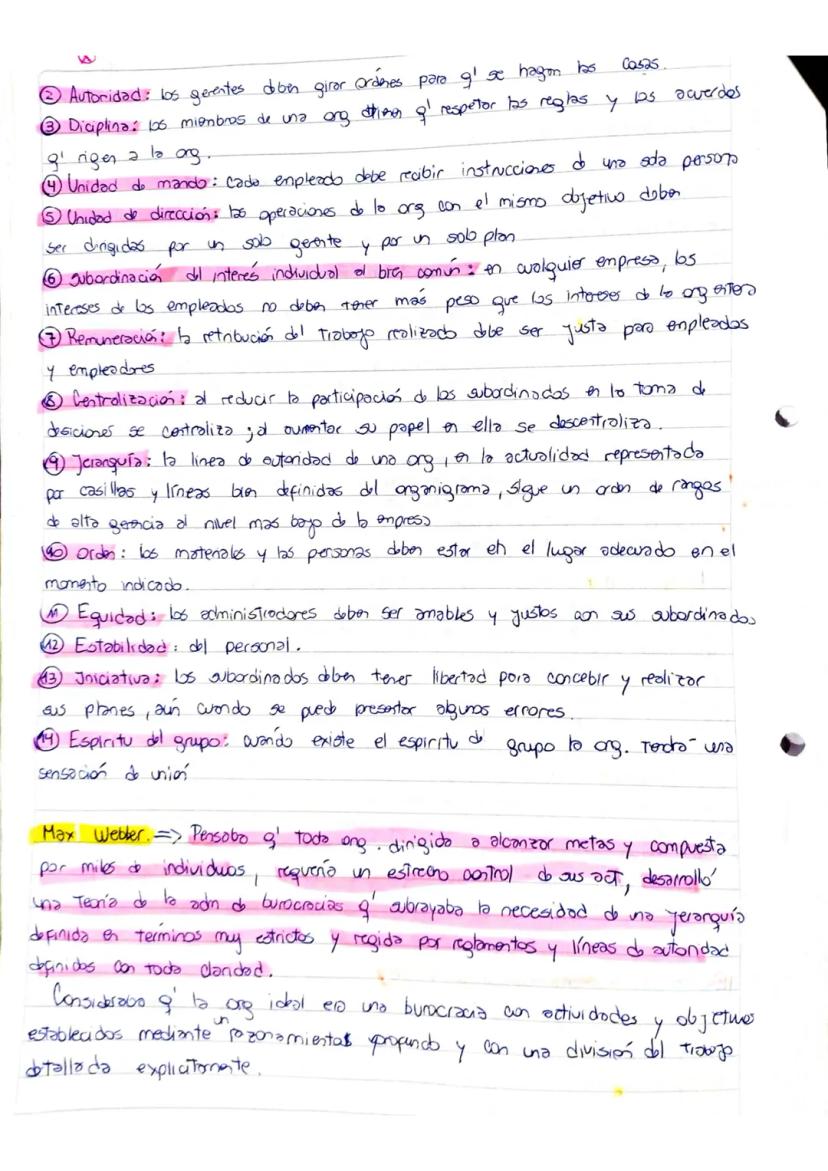 ② Autoridad: los gerentes deben girar ordenes para q' se hagan las cosas.
③ Diciplina: los miembros de una org tienen q' respetar las reglas y los acuerdos
q' rigen a la org.
④ Unidad de mando: cada empleado debe recibir instrucciones d una sola persona
⑤ Unidad de dirección: las operaciones de la org con el mismo objetivo deben
ser dirigidas por un solo gerente y por un solo plan
⑥ subordinación del interés individual al bien común: en cualquier empresa, los
intereses de los empleados no deben tener más peso que los intereses de la org entera
⑦ Remuneración: la retribución del trabajo realizado debe ser justa para empleados
y empleadores
⑧ Centralización: al reducir la participación de los subordinados en la toma de
desiciones se centraliza; al aumentar su papel en ella se descentraliza.
⑨ Jerarquía: la linea de autoridad de una org, en la actualidad representada
por casillas y líneas bien definidas del organigrama, sigue un orden de rangos
de alta gerencia al nivel mas bajo de la empresa
⑩ Orden: los materiales y las personas deben estar en el lugar adecuado en el
momento indicado.
⑪ Equidad: los administradores deben ser amables y justos con sus subordinados
⑫ Estabilidad: del personal.
⑬ Iniciativa: los subordinados deben tener libertad para concebir y realizar
sus planes, aún cuando se pued presentar algunos errores.
⑭ Espiritu del grupo: cuando existe el espiritu de grupo la org. Tendra una
sensación de unión
Max Webber. => Pensaba q' toda org. dirigida a alcanzar metas y compuesta
por miles de individuos, requería un estrecho control de sus act, desarrolló
una Teoría de la adm de burocracias q' subrayaba la necesidad de una jerarquía
definida en términos muy estrictos y regida por reglamentos y líneas de autoridad
definidos con toda claridad.
Consideraba q' la org ideal era una burocracia con actividades y objetivos
establecidos mediante un razonamiento profundo y con una división del trabajo
detallada explicitamente.